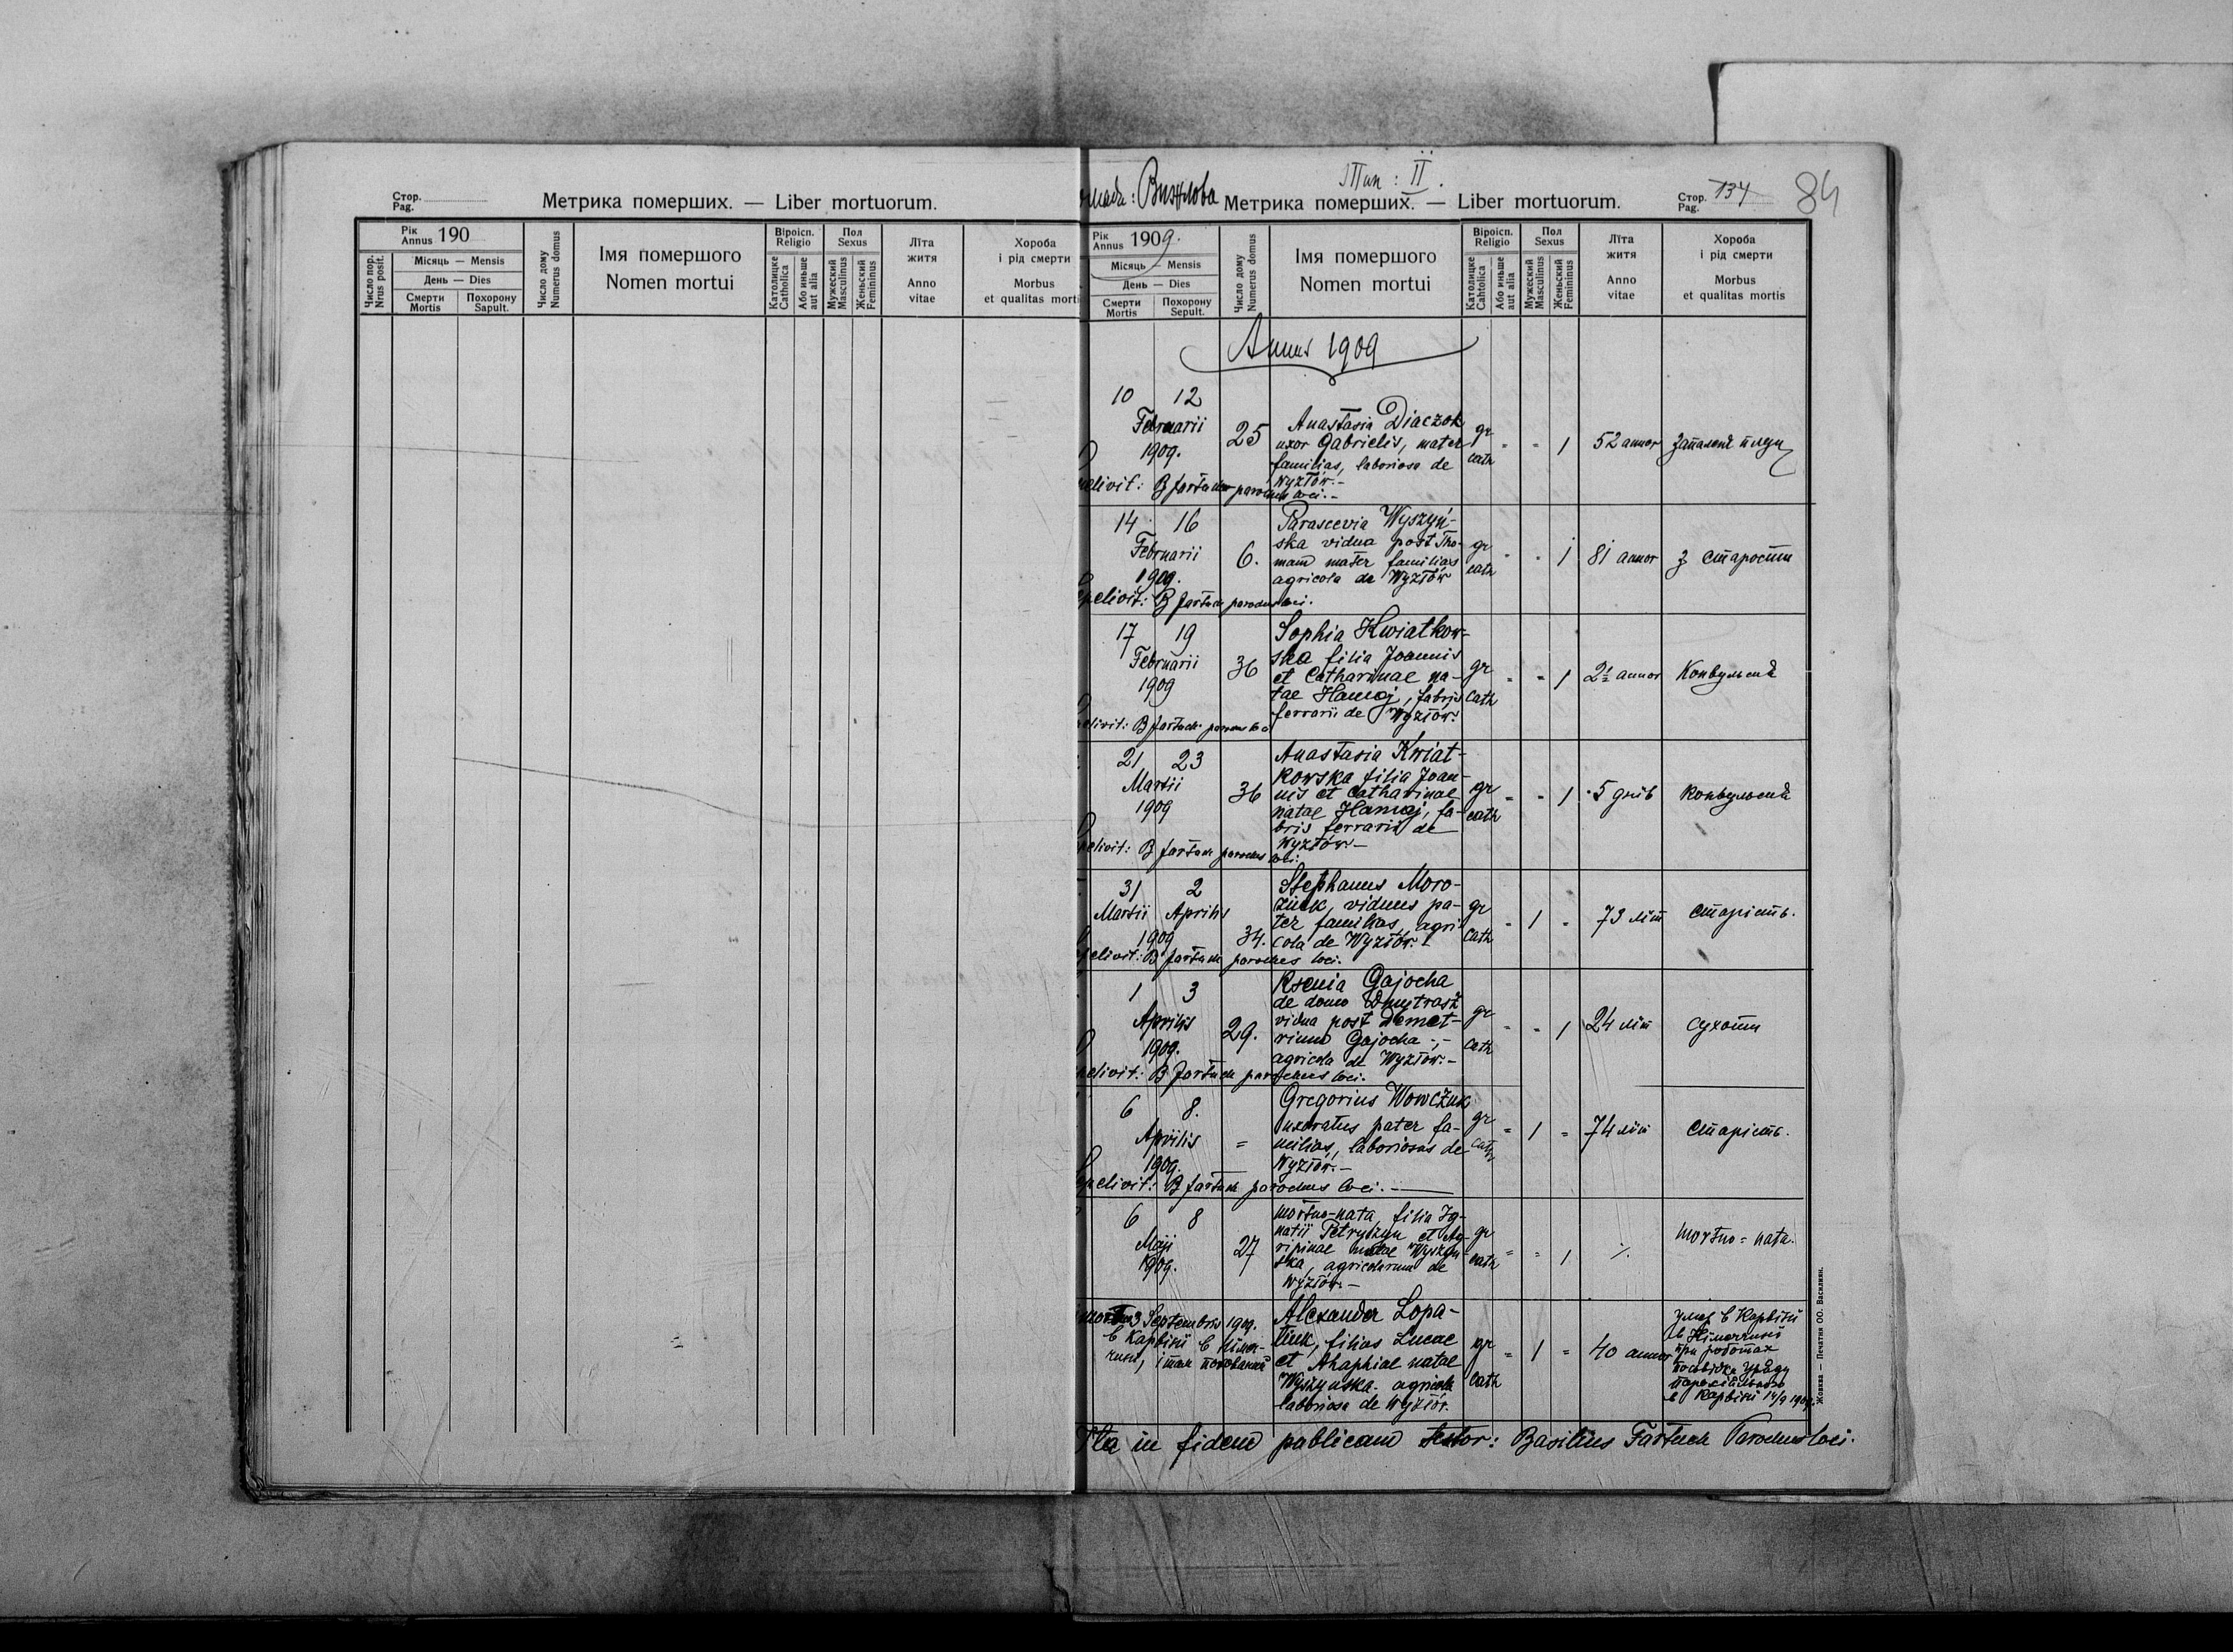 Стор.
Pag.
Метрика померших. — Liber mortuorum.
Рік
Annus 190
Місяць — Mensis
День — Dies
Число пор.
Nrus posit.
Смерти
Mortis
Похорону
Sapult.
Число дому
Numerus domus
Імя померш­ого
Nomen mortui
Віроісп.
Religio
Католицке
Catholica
Або иньше
aut alia
Пол
Sexus
Мужеский
Masculinus
Женьский
Femininus
Лїта
житя
Anno
vitae
Хороба
і рід смерти
Morbus
et qualitas morti
Вижлова
Тип: II.
Метрика померших. — Liber mortuorum.
Стор.
Pag. 134
84
Рік
Annus 1909.
Місяць — Mensis
День — Dies
Смерти
Mortis
Похорону
Sepult.
Число дому
Numerus domus
Імя помершого
Nomen mortui
Віроісп.
Religio
Католицке
Cahtolica
Або иньше
aut alia
Пол
Sexus
Мужеский
Masculinus
Женьский
Femininus
Лїта
житя
Anno
vitae
Хороба
і рід смерти
Morbus
et qualitas mortis
Annus 1909
10 12
Februarii
1909.
25
Anastasia Diaczok
uxor Gabrielis, mater
familias, laboriosa de
Wyztów.-
gr
cath
" " 1
52 annor
запаленя
pelivit: B Fartuch parochus loci.-
14 16
Februarii
1909.
6.
Parascevia Wyszyń-
ska vidua post Tho-
mam mater familias
agricola de Wyztów
gr
cath
" " 1
81 annor
з старости
pelivit: B Fartuch parochus loci.
17 19
Februarii
1909
36
Sophia Kwiatkow-
ska filia Joannis
et Catharinae na-
tae Hamaj, fabris
ferrarii de Wyztów.
gr
cath
" " 1
2½ annor
Конвульсиї
pelivit: B Fartuch parochus loci
21 23
Martii
1909
36
Anastasia Kwiat-
kowska filia Joan-
nis et Catharinae
natae Hamaj, fa-
bris ferrarii de
Wyztów.-
gr
cath
" " 1
5 днїв
конвульсиї
pelivit: B Fartuch parochus loci.
31 2
Martii Aprilis
1909
34.
Stephanus Moro-
ziuk, viduus pa-
ter familias, agri-
cola de Wyztów.-
gr
cath
" 1 "
73 лїт
старість.
pelivit: B Fartuch parochus loci.
1 3
Aprilis
1909.
29.
Ksenia Gajocha
de domo Dmytrasz
vidua post Demet-
rium Gajocha -,-
agricola de Wyztów.-
gr
cath
" " 1
24 лїт
сухоти
pelivit: B Fartuch parochus loci.
6 8.
Aprilis
1909.
=
Gregorius Wowczuk
uxoratus pater fa-
milias, laboriosus de
Wyztów.-
gr
cath
= 1 =
74 лїт
старість.
pelivit: B Fartuch parochus loci.
6 8
Maji
1909.
27
mortuo-nata filia Ig-
natii Petryszyn et Ag-
ripinae natae Wyszyn-
ska, agricolarum de
Wyztów.-
gr
cath
= = 1
·/.
mortuo = nata.
3 Septembris 1909.
в Карвінї в Нїмеч-
чинї, і там похований
=
Alexander Lopa-
tiuk, filius Lucae
et Ahaphiae natae
Wyszynska. agricola
laboriosa de Wyztów.
gr
cath
= 1 =
40 annor
умер в Карвінї
в Нїмеччинї
при роботах
посьвідка Уряду
парохіяльного
в Карвінї 14/9 1909.
Ita in fidem publicam testor: Basilius Fartuch Parochus loci.
Жовква — Печатня ОО. Василиян.